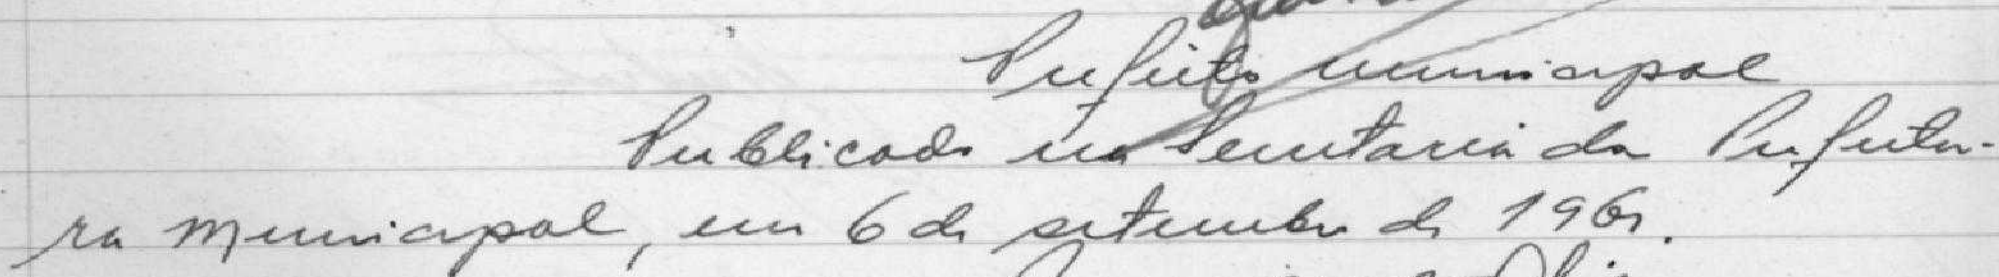 Prefeito municipal
Publicado na Secretaria da Prefeitu-
ra Municipal, em 6 de setembro de 1961.